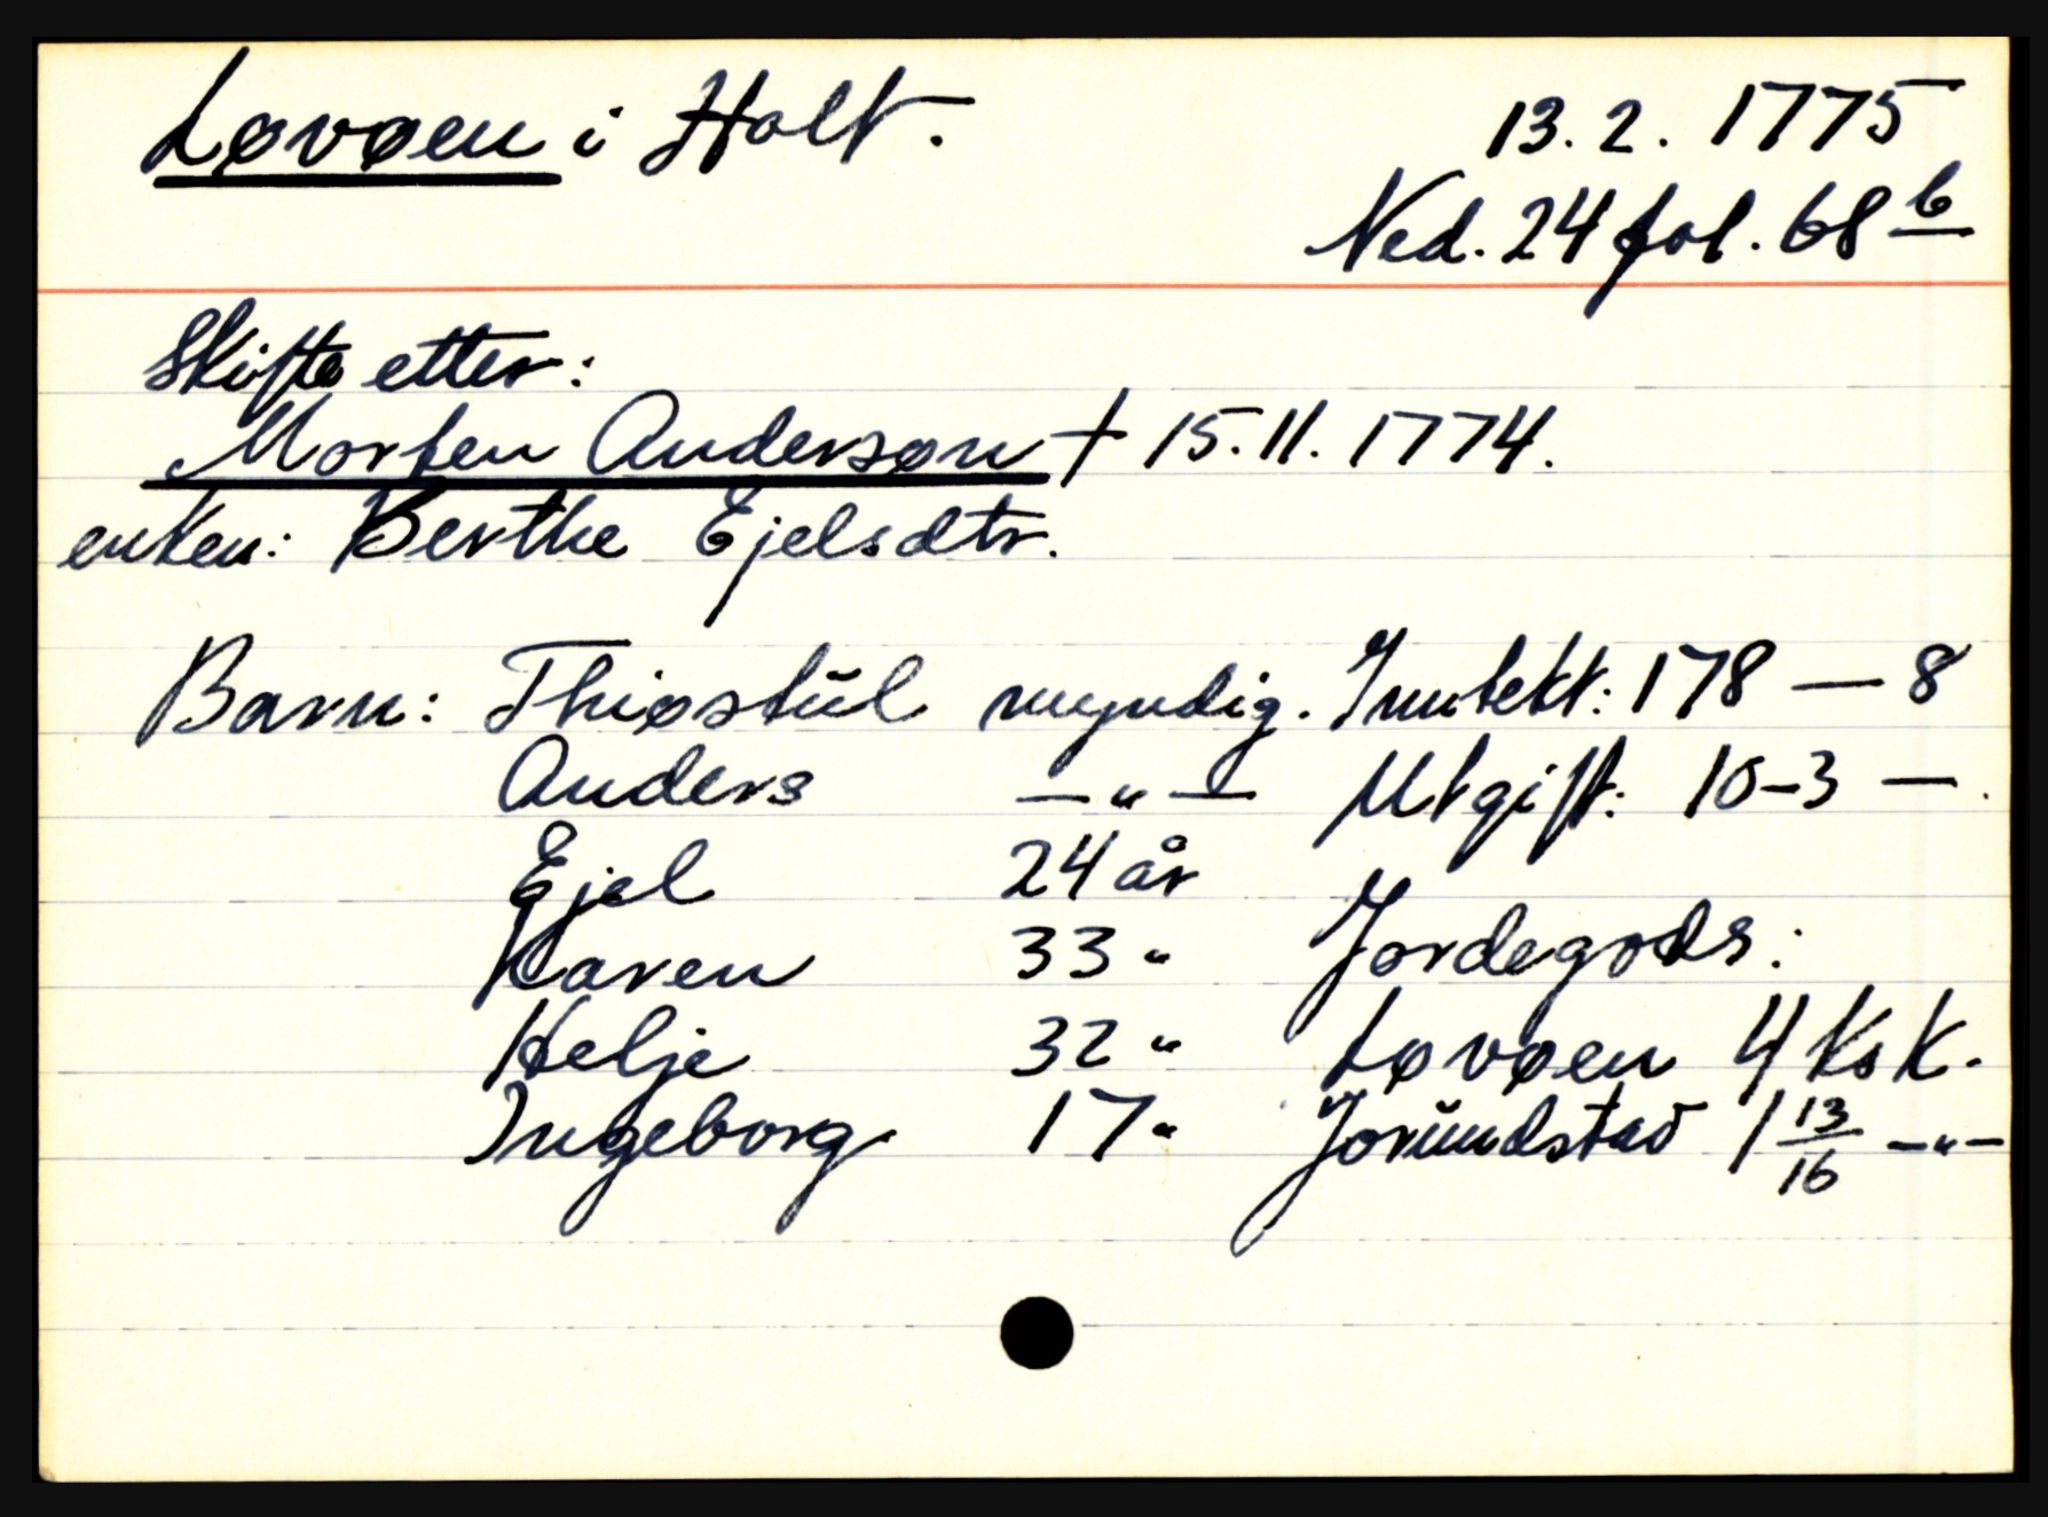 Løvøen i Holt. 13.2.1775
Ned. 24 fol. 68 b
Skifte etter:
Morten Andersøn † 15.11.1774.
enken: Berthe Ejelsdtr.
Barn: Thiøstül myndig. Inntekt: 178 — 8
Anders —„— Utgift: 10-3 —.
Ejel 24 år
Karen 33 " Jordegods:
Helje 32 " Løvøen 4 Ks K.
Ingeborg 17 " Jorŭndstad 1 13/16 —„—